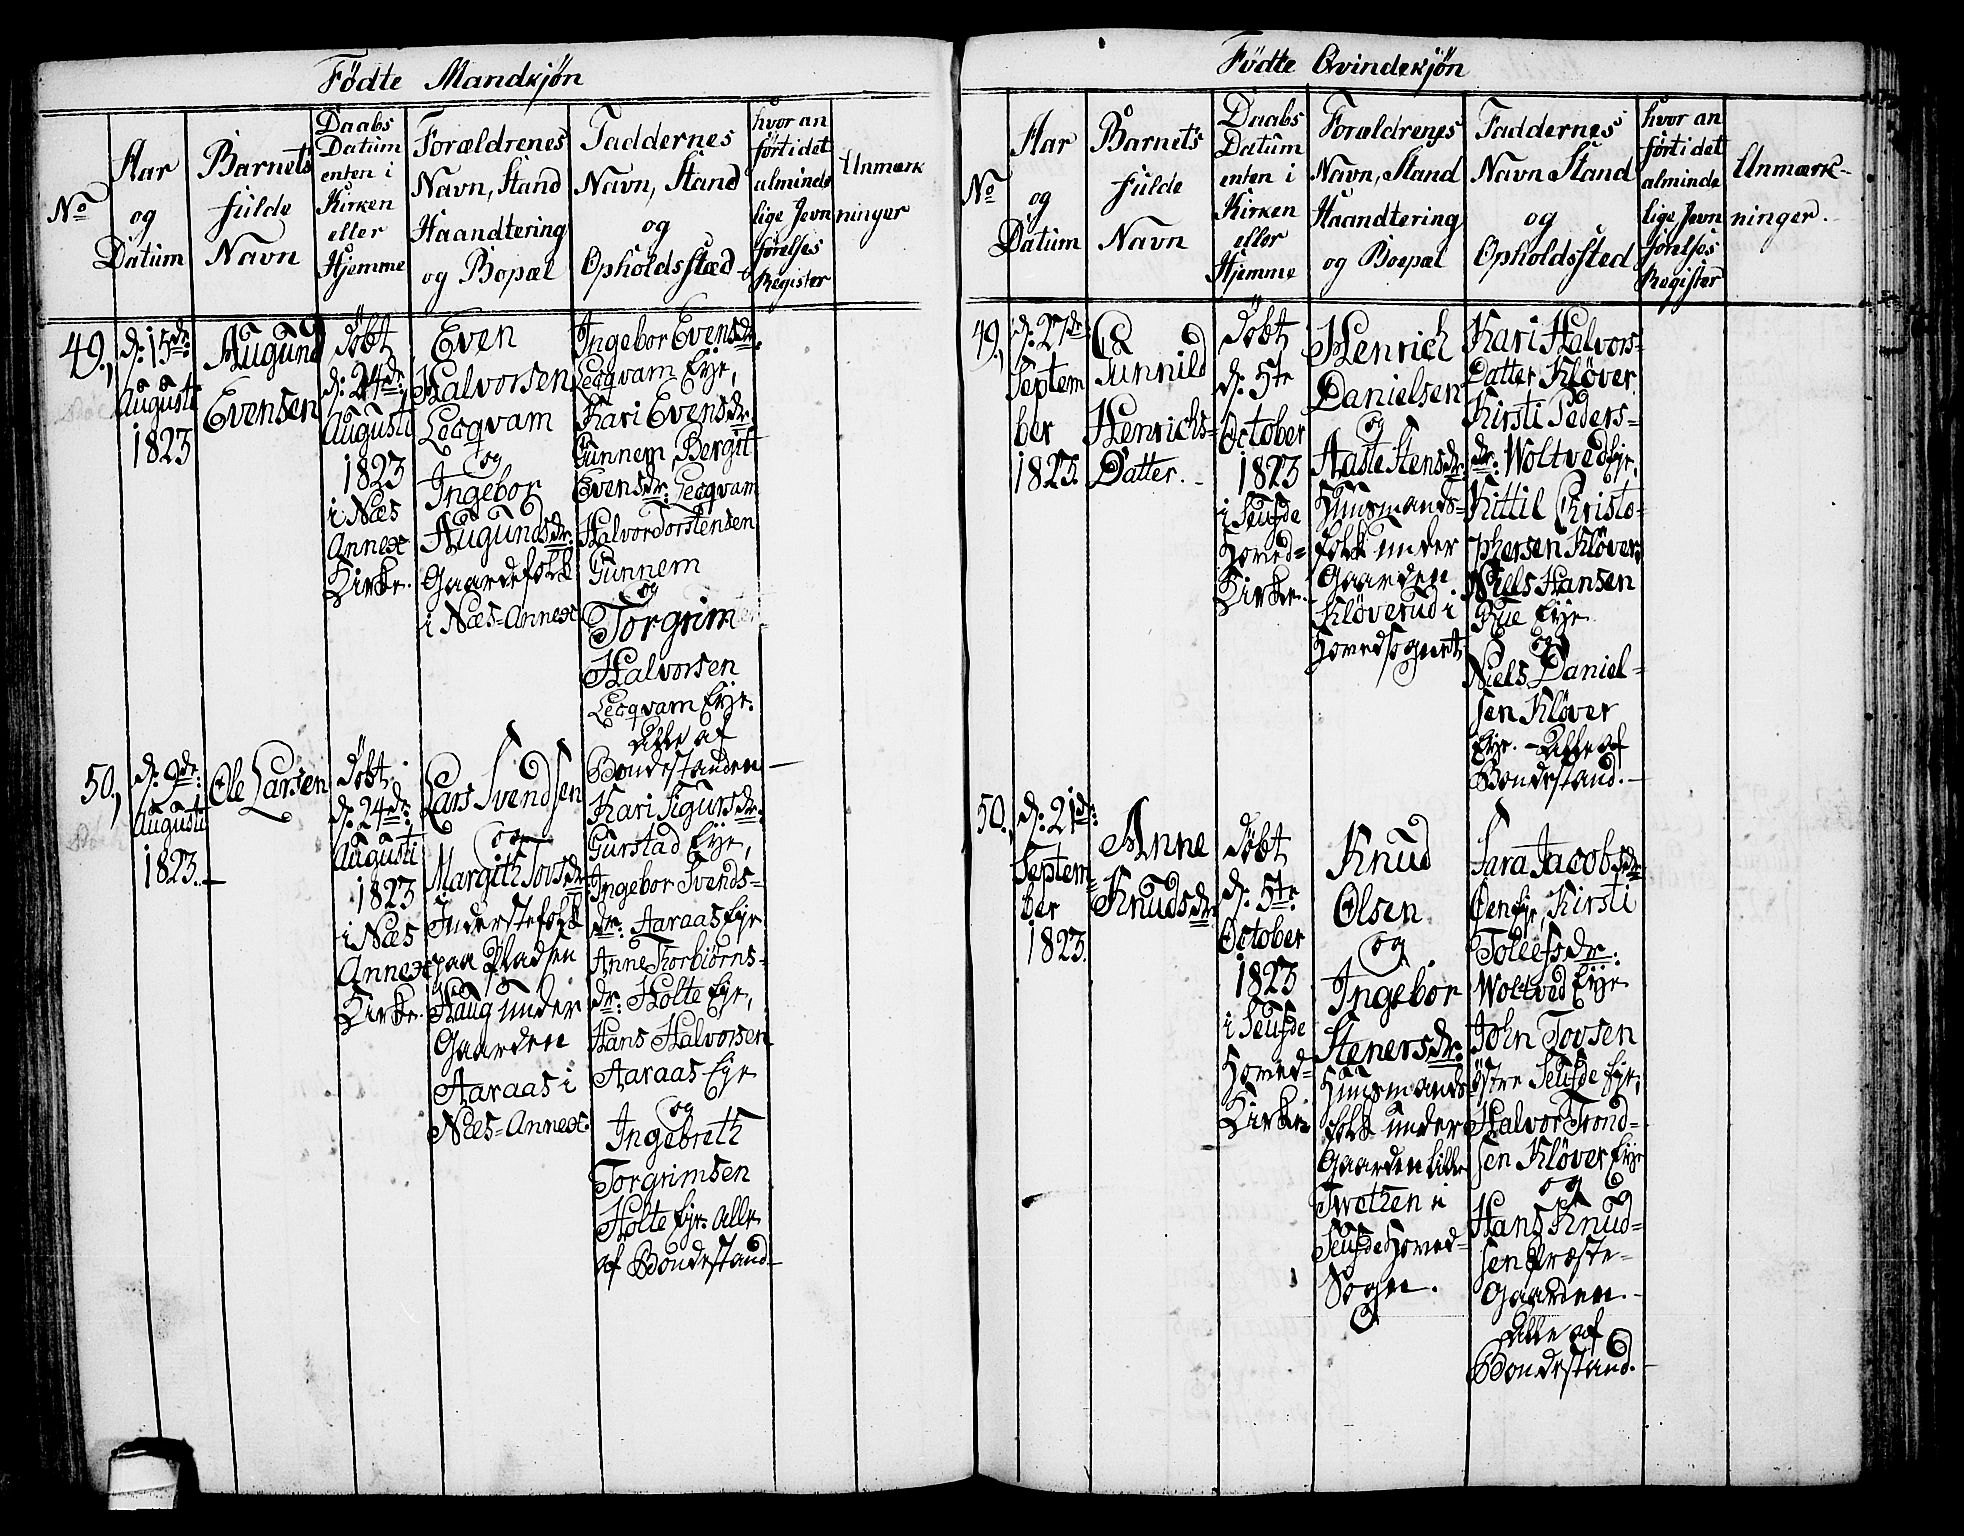 Födte Mandkjön
No
Aar
og
Datum
Barnets
fulde
Navn
Daabs
Datum
enten i
Kirken
eller
Hjemme
Forældrenes
Navn, Stand
Haandtering
og Bopæl
Faddernes
Navn, Stand
og
Opholdsstæd
hvor an
fört i det
alminde
lige Jevn
förelses
Register
Anmærk
ninger
49.,
d: 15de:
Augusti
1823
Augund
Evensen
döbt
d: 24de:
Augusti
1823
i Næs
Annex
Kirke.
Even
Halvorsen
Leqvam
og
Ingebor
Augundsdr:
Gaardefolk
i Næs-Annex
Ingebor Evensdr.
Leqvam Eje,
Kari Evensdr.
Gunnem, Bergit
Evensdr: Leqvam
Halvor Torstensen
Gunnem
og
Torgrim
Halvorsen
Leqvam Eje.
Alle af
Bondestanden
50.,
d: 9de:
Augusti
1823.
Ole Larsen
döbt
d: 24de:
Augusti
1823
i Næs
Annex
Kirke.
Lars Svendsen
og
Margith Tovsdr
Inderstefolk
paa Pladsen
Haug under
Gaarden
Aaraas i
Næs-Annex.
Kari Sigursdr:
Gurstad Eje,
Ingebor Svends-
dr: Aaraas Eje
Anne Torbiörns-
dr: Holte Eje,
Hans Halvorsen
Aaraas Eje
og
Ingebreth
Torgrimsen
Holte Eje. Alle
af Bondestand
Födte Qvindekjön
No
Aar
og
Datum
Barnets
fulde
Navn
Daabs
Datum
enten i
Kirken
eller
Hjemme
Forældrenes
Navn, Stand
Haandtering
og Boepæl
Faddernes
Navn Stand
og
Opholdssted
hvor an
fört i det
alminde
lige Jevn
förelses
Register
Anmærk-
ninger.
49.,
d: 27de:
Septem
ber
1823.
Gunnild
Henrichs-
Datter.
Döbt
d: 5te
October
1823
i Seufde
Hoved-
Kirke.
Henrich
Danielsen
og
Aaste Stensdr.
Huusmands-
folk under
Gaarden
Klöverud i
Hovedsognet
Kari Halvors-
Datter Klöver
Kirsti Peders-
dr: Woltved Eje.
Kittil Christo-
phersen Klöver
Niels Hansen
Rue Eje
og
Niels Daniel-
sen Klöver
Eje. - Alle af
Bondestand.
50.,
d: 21de:
Septem-
ber
1823.
Anne
Knudsdr
Döbt
d: 5te:
October
1823
i Seufde
Hoved-
Kirke
Knud
Olsen
og
Ingebor
Stenersdr:
Huusmands
folk under
Gaarden Lille
Twethen i
Seufde Hoved-
Sogn.
Sara Jacobsdr:
Öen Eje, Kirsti
Tollefsdr:
Woltved Eje
John Tovsen
östre Seufde Eje,
Halvor Trond-
sen Klöver Eje
og
Hans Knud-
sen Præste-
Gaarden.
Alle af
Bondestand.